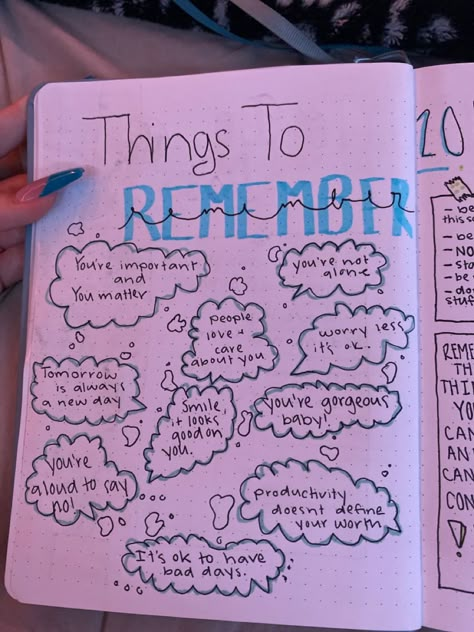 Things To
REMEMBER
remember
You're important
and
You matter
you're not
alone
people
love +
care
about you
worry less
it's ok.
Tomorrow
is always
a new day
Smile,
it looks
good on
you.
you're gorgeous
baby!
you're
aloud to say
no!
productivity
doesnt define
your worth
It's ok to have
bad days.
10
- be
this s
- be
- NO
- sta
- be
- do
stu
REME
TH
THI
YO
CAN
AN
CAN
CON
!